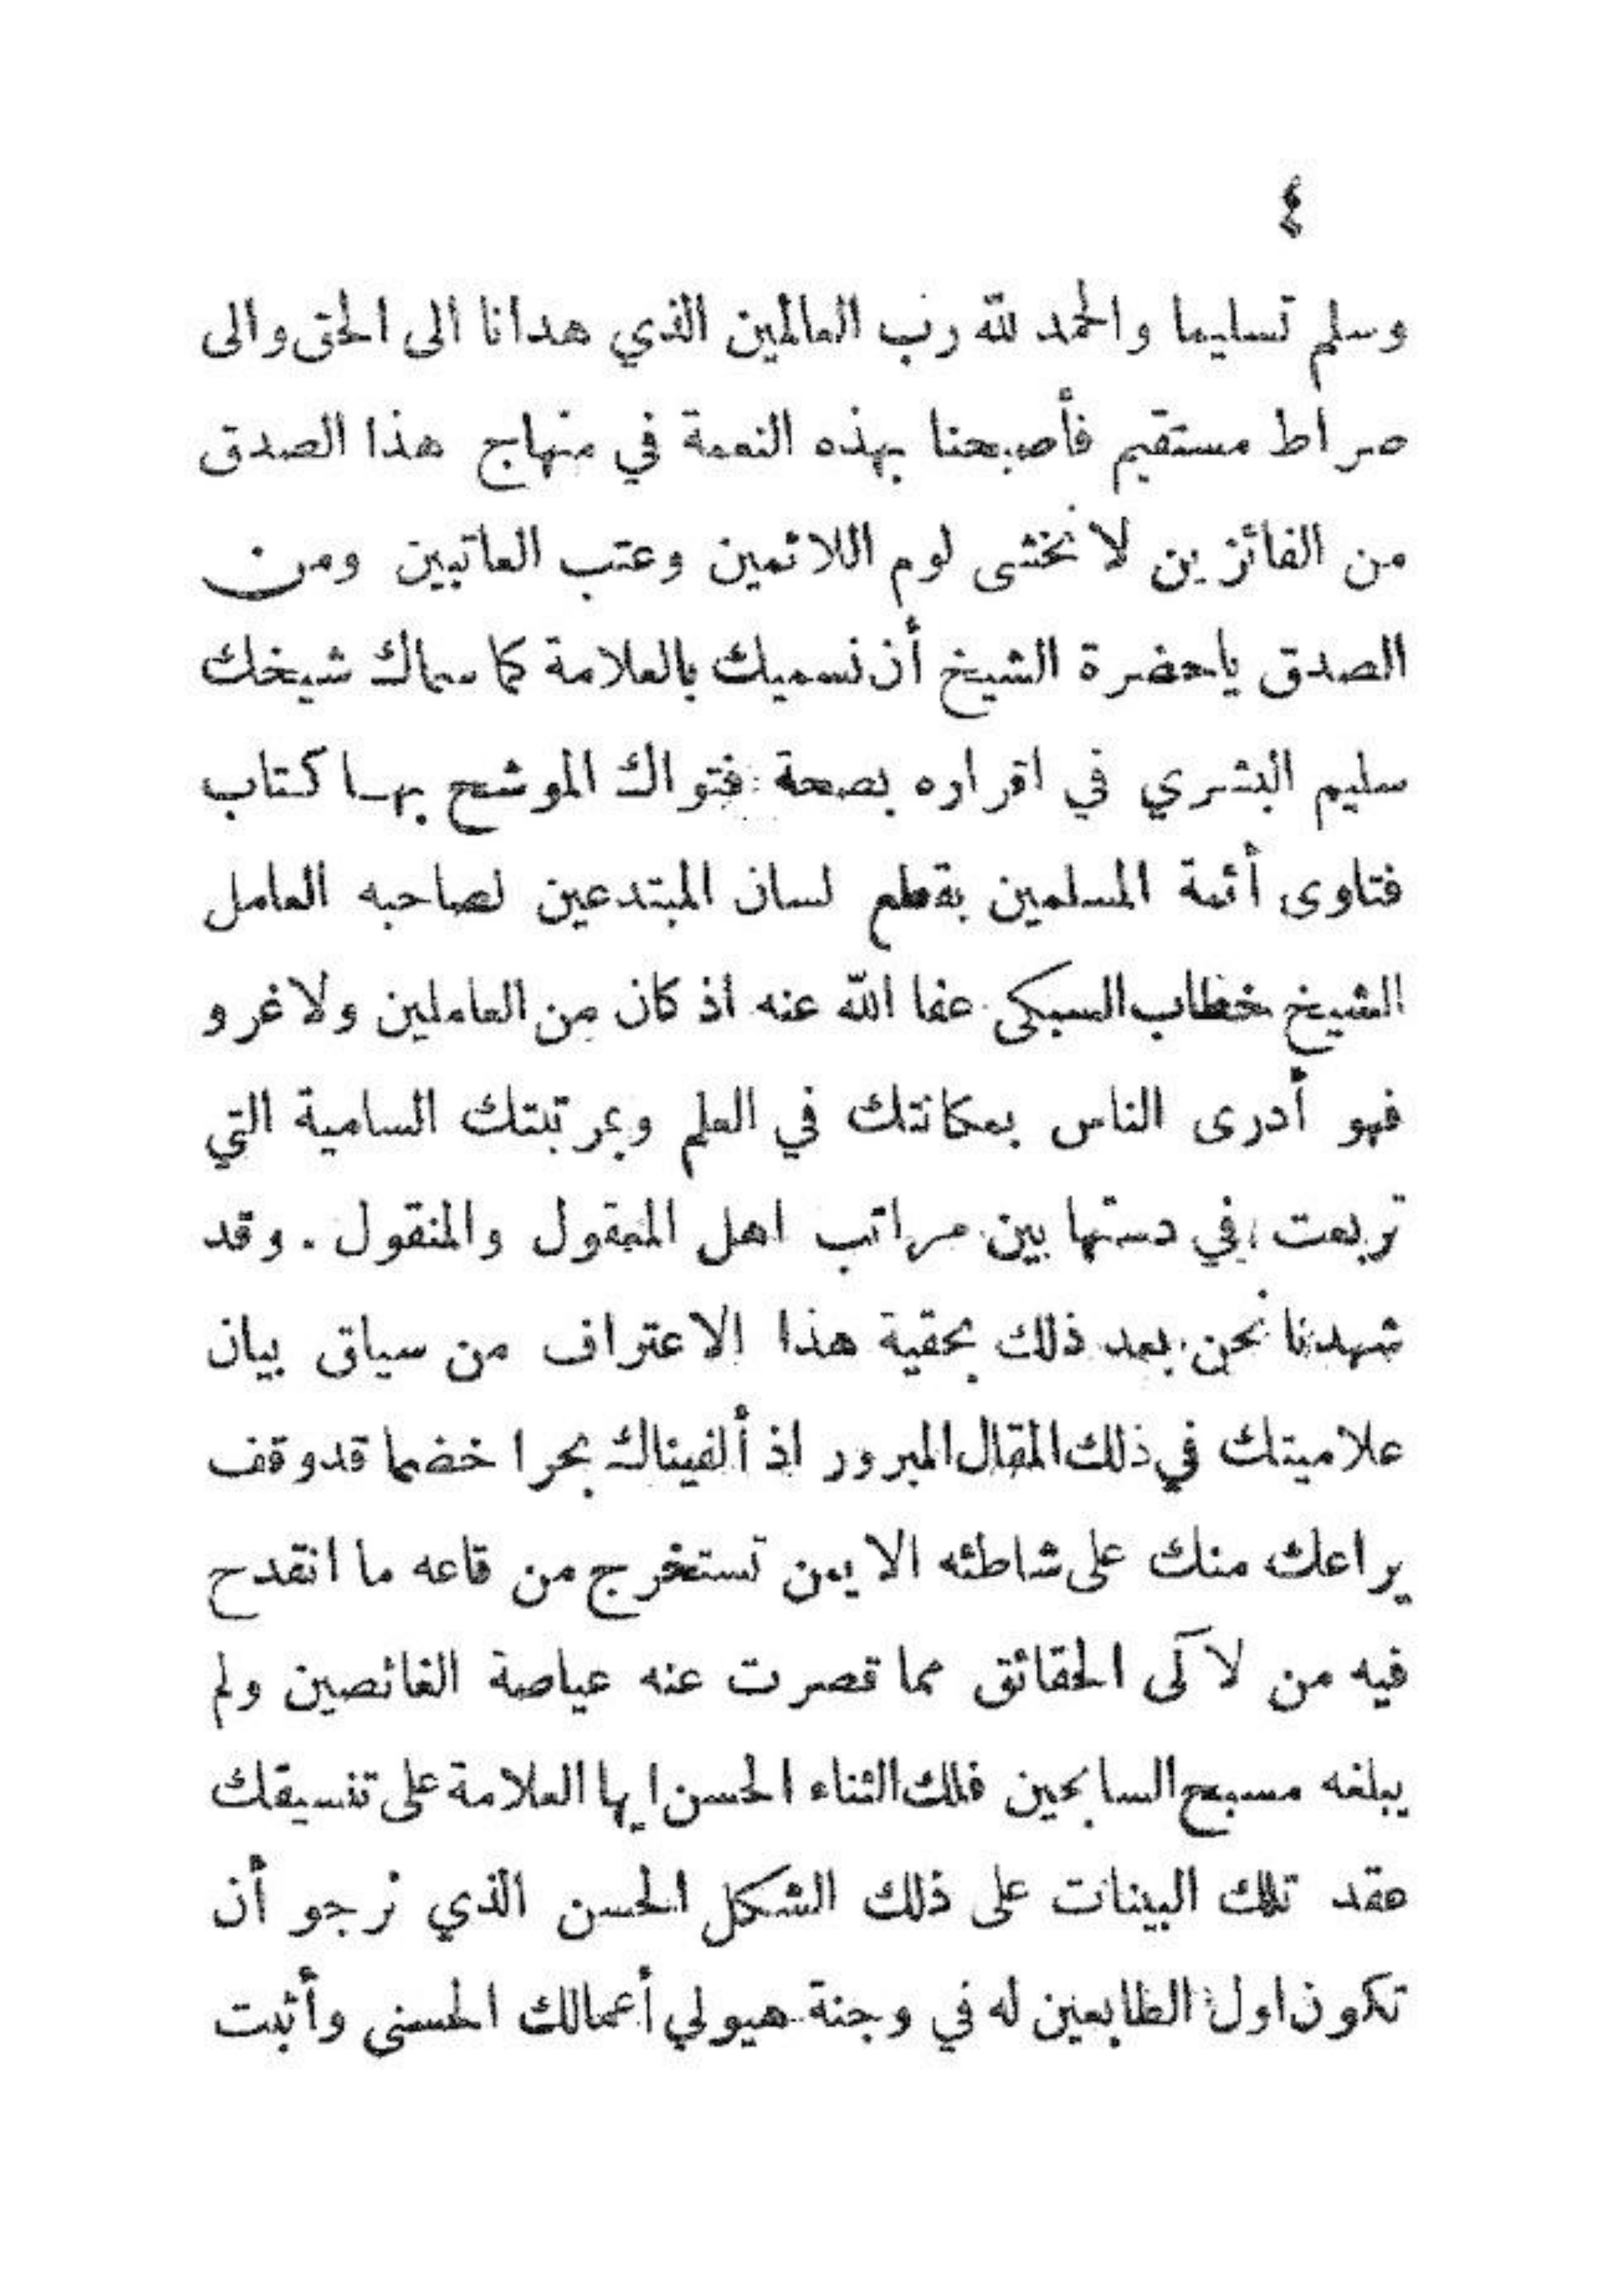 ٤
وسلم تسليما والحمد لله رب العالمين الذي هدانا الى الحق والى
صراط مستقيم فأصبحنا بهذه النعمة في منهاج هذا الصدق
من الفائزين لا نخشى لوم اللائمين وعتب العاتبين ومن
الصدق ياحضرة الشيخ أن نسميك بالعلامة كما سماك شيخك
سليم البشري في اقراره بصحة فتواك الموشح بها كتاب
فتاوى أئمة المسلمين بقطع لسان المبتدعين لصاحبه العامل
الشيخ خطاب السبكى عفا الله عنه اذ كان من العاملين ولا غرو
فهو أدرى الناس بمكانتك في العلم وبمرتبتك السامية التي
تربعت في دستها بين مراتب اهل المعقول والمنقول . وقد
شهدنا نحن بعد ذلك بحقية هذا الاعتراف من سياق بيان
علاميتك في ذلك المقال المبرور اذ ألفيناك بحرا خضما قد وقف
يراعك منك على شاطئه الايمن تستخرج من قاعه ما انقدح
فيه من لاَلى الحقائق مما قصرت عنه عياصة الغائصين ولم
يبلغه مسبح السابحين فلك الثناء الحسن ايها العلامة على تنسيقك
عقد تلك البينات على ذلك الشكل الحسن الذي نرجو أن
تكون اول الطابعين له في وجنة هيولي أعمالك الحسنى وأثبت